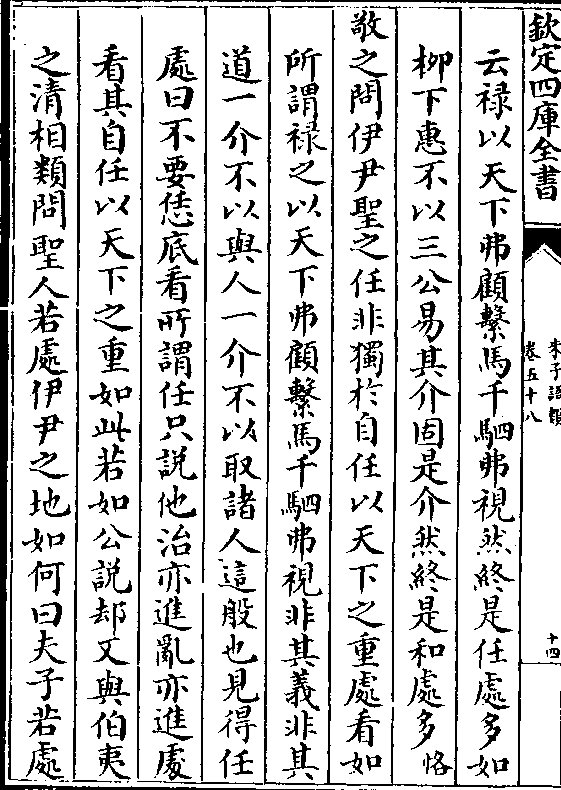 欽定四庫全書
朱子語類
卷五十八
十四
云禄以天下弗顧繫馬千駟弗視然終是任處多如
柳下惠不以三公易其介固是介然終是和處多恪
敬之問伊尹聖之任非獨於自任以天下之重處看如
所謂禄之以天下弗顧繫馬千駟弗視非其義非其
道一介不以與人一介不以取諸人這般也見得任
處曰不要恁底看所謂任只說他治亦進亂亦進處
看其自任以天下之重如此若如公說却又與伯夷
之清相類問聖人若處伊尹之地如何曰夫子若處